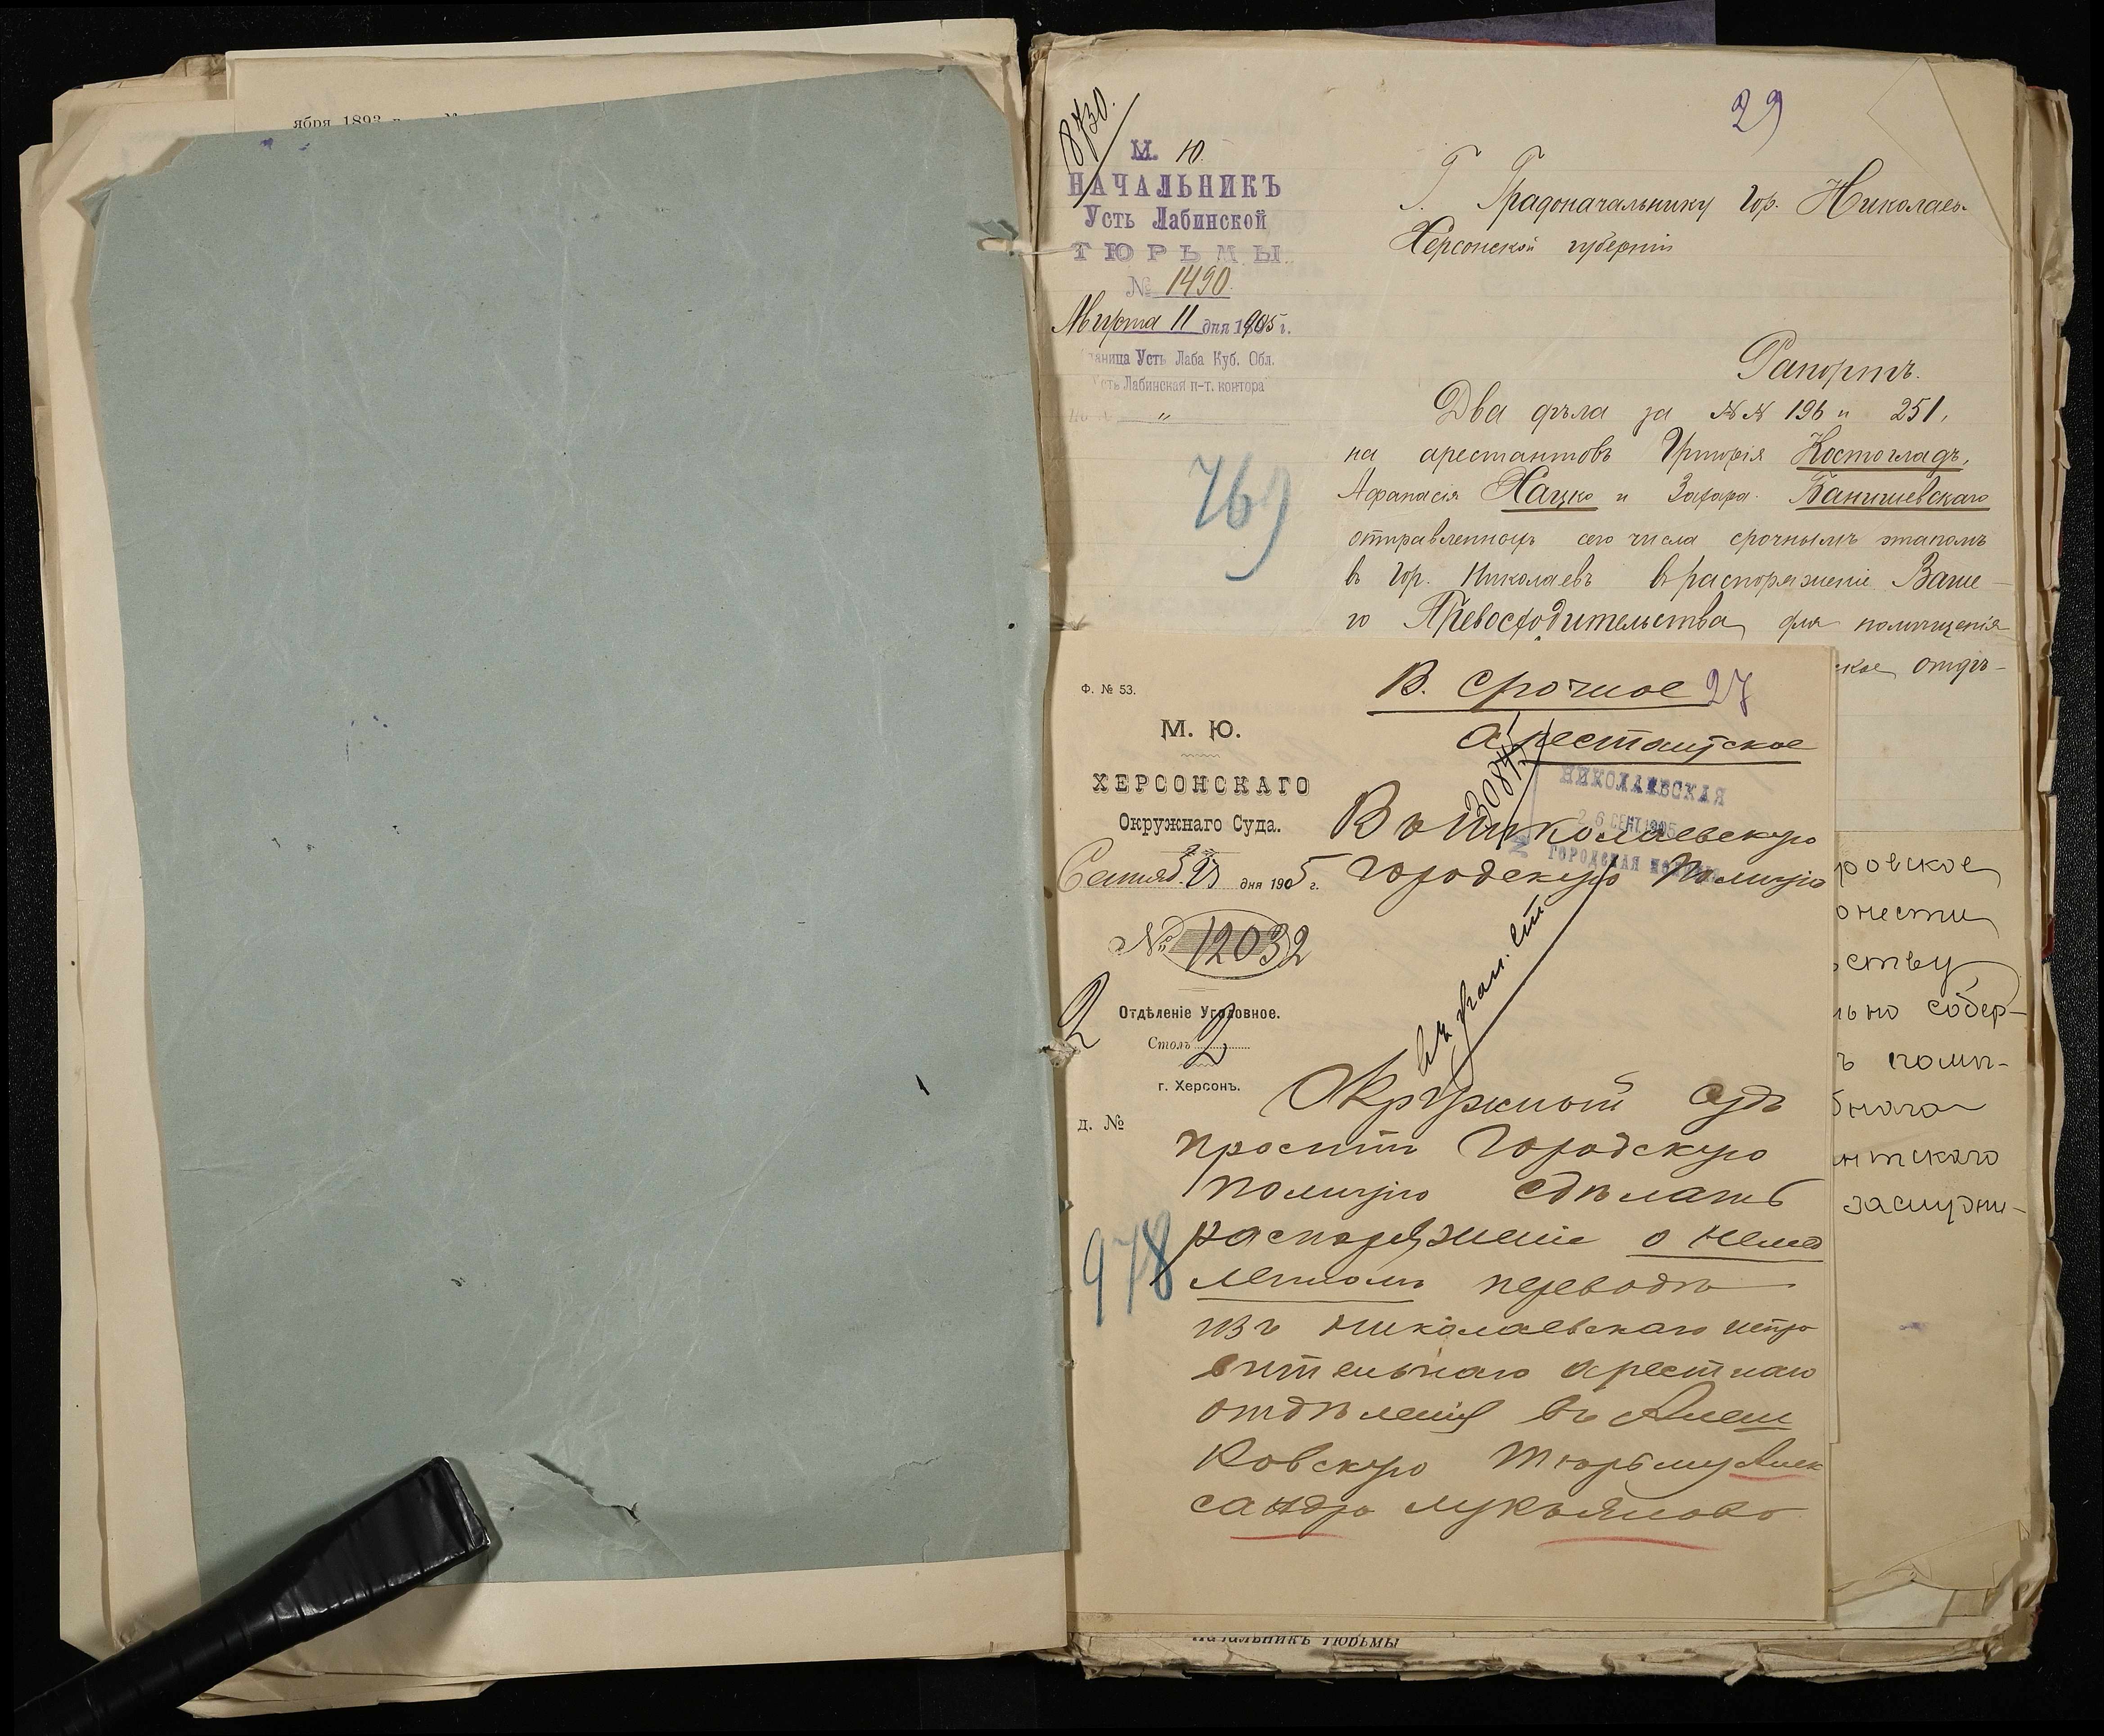 ября 1893 г.
29
8730.
М. Ю.
НАЧАЛЬНИКЪ
Усть Лабинской
ТЮРЬМЫ
№ 1490.
Августа 11 дня 1905 г.
таница Усть Лаба Куб. Обл.
Усть Лабинская п-т. контора
769
Г. Градоначальнику Гор. Николаев
Херсонской губерніи
Рапортъ.
Два дѣла за №№ 196 и 251,
на арестантовъ Григорія Костогладъ,
Афанасія Хацко и Захара Банишевскаго
отправленныхъ сего числа срочнымъ этапомъ
въ Гор. Николаевъ въ распоряженіе Ваше-
го Превосходительства, для помѣщенія
ское отдѣ-
Ф. № 53.
М. Ю.
ХЕРСОНСКАГО
Окружнаго Суда.
Сентяб. 23 дня 1905 г.
№ 12032
2
Отдѣленіе Уголовное.
Столъ 2
г. Херсонъ.
д. №
978
В. срочное 27
арестантское
30845
НИКОЛАЕВСКАЯ
26 СЕНТ. 1905
ГОРОДСКАЯ
Въ Николаевскую
Городскую Полицію
Окружный Судъ
проситъ Городскую
полицію сдѣлать
распоряженіе о немед
леномъ переводѣ
изъ Николаевскаго испра
вительнаго арестнаго
отдѣленія въ Алеш
ковскую тюрьму Алек
сандра Лукьянова
ровское
онести
ству
льно совер-
ъ помѣ-
бнаго
нтскаго
заслужи-
Начальникъ тюрьмы